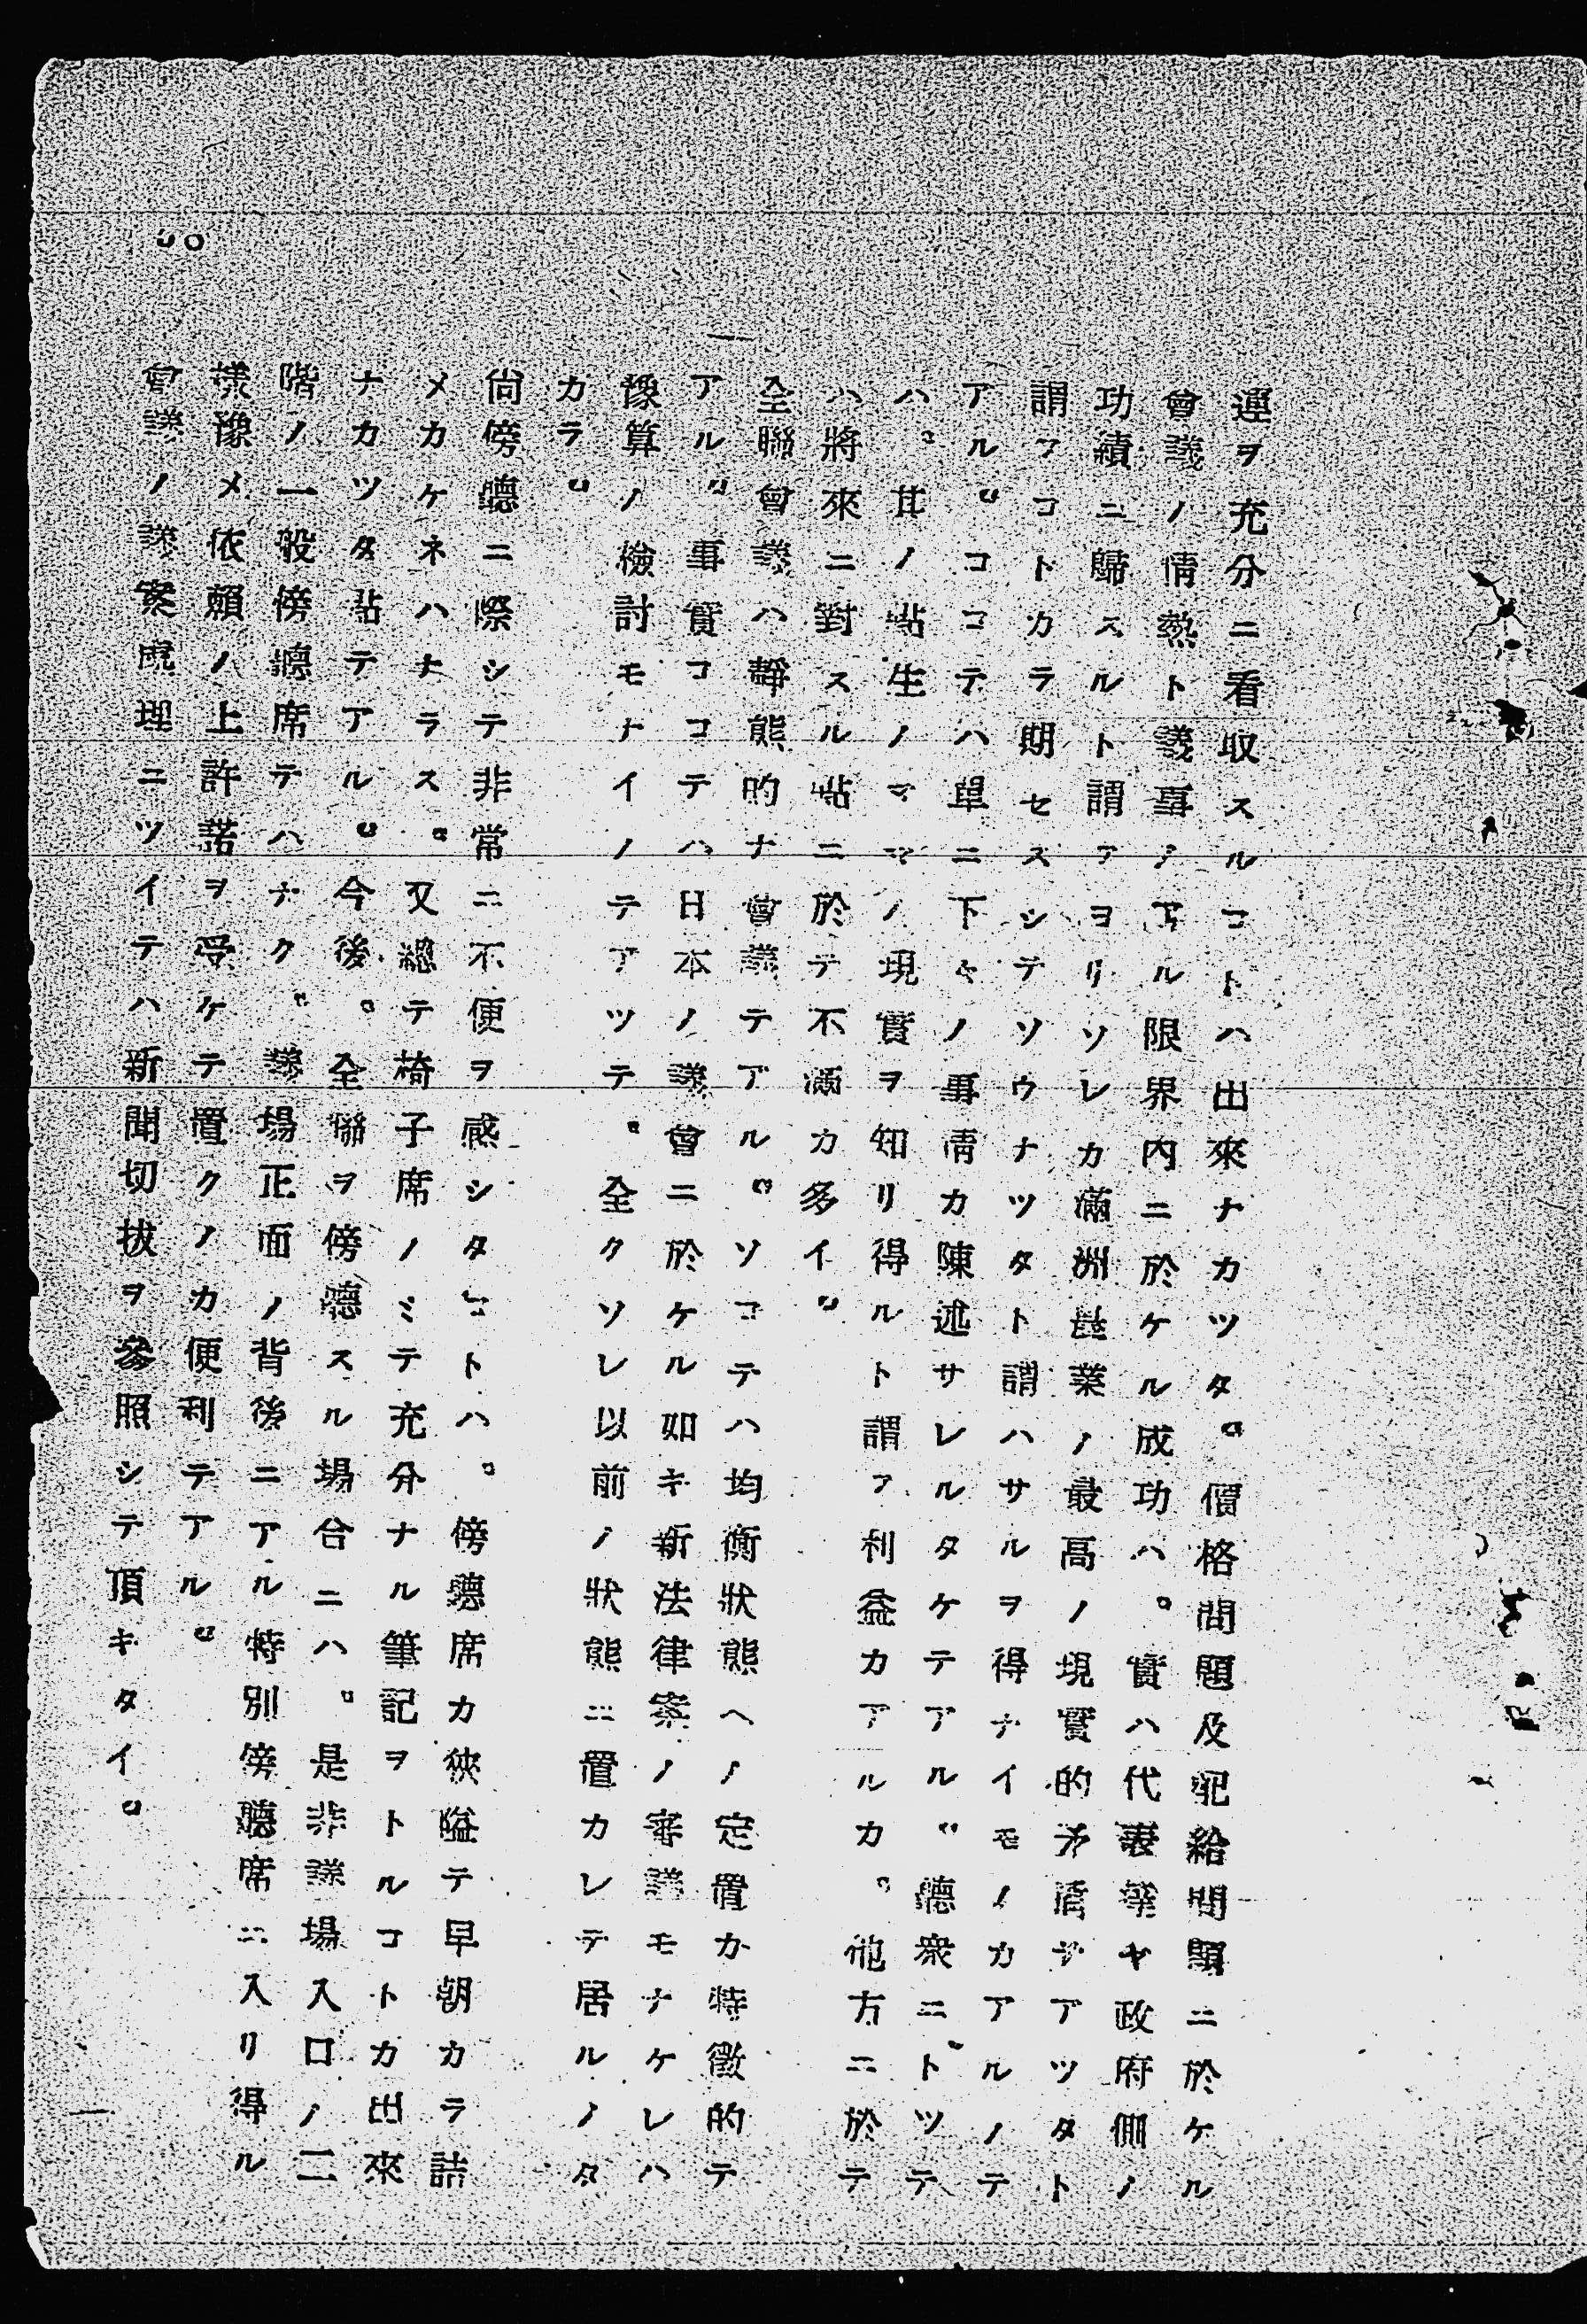 運ヲ充分ニ看取スルコトハ出來ナカツタ。價格問題及配給問題ニ於ケル
會議ノ情熱ト議事ノアル限界内ニ於ケル成功ハ。實ハ代表達ヤ政府側ノ
功績ニ歸スルト謂フヨリソレカ滿洲農業ノ最高ノ現實的矛盾デアツタト
謂フコトカラ期セスシテソウナツタト謂ハサルヲ得ナイモノカアルノテ
アル。ココテハ單ニ下々ノ事情カ陳述サレルタケテアル。聽衆ニトツテ
ハ。其ノ點生ノママノ現實ヲ知リ得ルト謂フ利益カアルカ。他方ニ於テ
ハ將來ニ對スル點ニ於テ不滿カ多イ。
全聯會議ハ靜態的ナ會議テアル。ソコテハ均衡狀態ヘノ定置カ特徵的テ
アル。事實ココテハ日本ノ議會ニ於ケル如キ新法律案ノ審議モナケレハ
豫算ノ檢討モナイノテアツテ。全クソレ以前ノ狀態ニ置カレテ居ルノタ
カラ。
尙傍聽ニ際シテ非常ニ不便ヲ感シタコトハ。傍聽席カ狹隘テ早朝カラ詰
メカケネハナラス。又總テ椅子席ノミテ充分ナル筆記ヲトルコトカ出來
ナカツタ點テアル。今後。全聯ヲ傍聽スル場合ニハ。是非議場入口ノ二
階ノ一般傍聽席テハナク。議場正面ノ背後ニアル特別傍聽席ニ入リ得ル
樣豫メ依賴ノ上許諾ヲ受ケテ置クノカ便利テアル。
會議ノ議案處理ニツイテハ新聞切拔ヲ參照シテ頂キタイ。